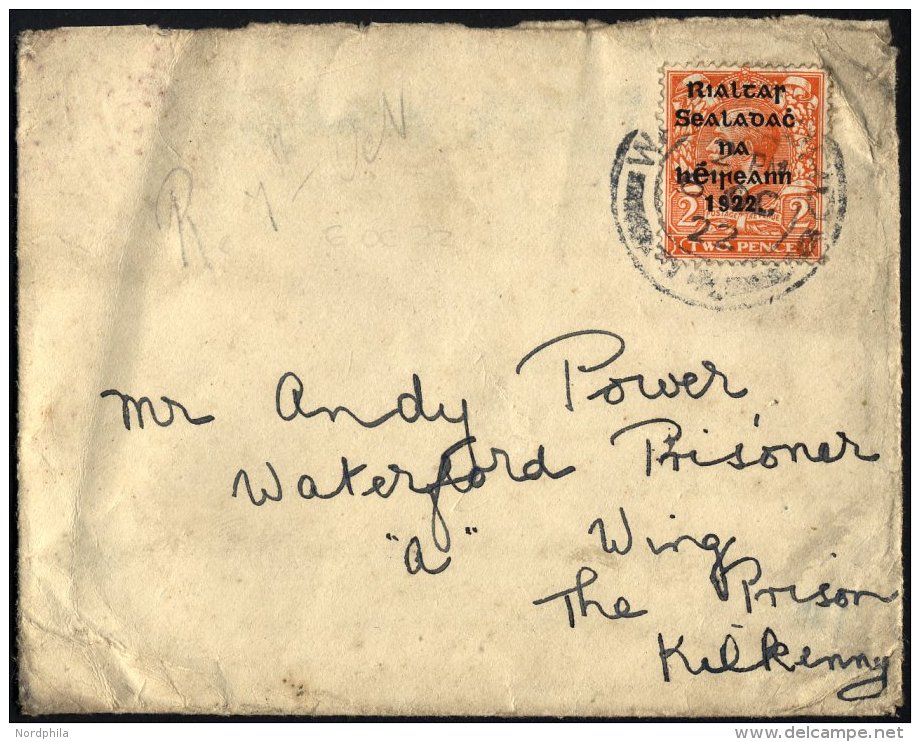 Rialtar
Sealadaċ
na
hÉireann
1922
2 2
POSTAGE
TWO PENCE
2 PM
22
Mr Andy Power
Waterford Prisoner
"A" Wing
The Prison
Kilkenny
Nordphila
delcampe.net